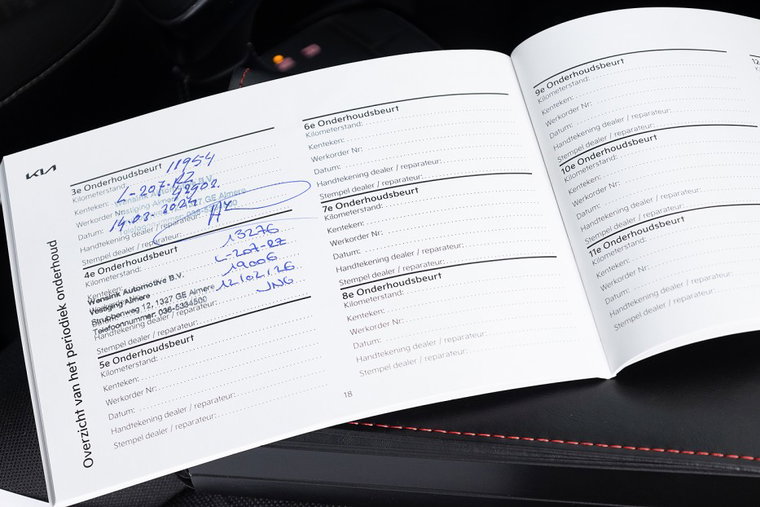 KIA
Overzicht van het periodiek onderhoud
3e Onderhoudsbeurt
Kilometerstand: 11954
Kenteken: L-207-RZ
Werkorder Nr:
Datum: 14.03.2024
Handtekening dealer / reparateur:
Stempel dealer / reparateur:
4e Onderhoudsbeurt
Kilometerstand: 13276
Kenteken: L-207-RZ
19006
12/02/26
JNG
Wensink Automotive B.V.
Vestiging Almere
Strubbenweg 12, 1327 GE Almere
Telefoonnummer 036-5334500
Handtekening dealer / reparateur:
Stempel dealer / reparateur:
5e Onderhoudsbeurt
Kilometerstand:
Kenteken:
Werkorder Nr:
Datum:
Handtekening dealer / reparateur:
Stempel dealer / reparateur:
6e Onderhoudsbeurt
Kilometerstand:
Kenteken:
Werkorder Nr:
Datum:
Handtekening dealer / reparateur:
Stempel dealer / reparateur:
7e Onderhoudsbeurt
Kilometerstand:
Kenteken:
Werkorder Nr:
Datum:
Handtekening dealer / reparateur:
Stempel dealer / reparateur:
8e Onderhoudsbeurt
Kilometerstand:
Kenteken:
Werkorder Nr:
Datum:
Handtekening dealer / reparateur:
Stempel dealer / reparateur:
18
9e Onderhoudsbeurt
Kilometerstand:
Kenteken:
Werkorder Nr:
Datum:
Handtekening dealer / reparateur:
Stempel dealer / reparateur:
10e Onderhoudsbeurt
Kilometerstand:
Kenteken:
Werkorder Nr:
Datum:
Handtekening dealer / reparateur:
Stempel dealer / reparateur:
11e Onderhoudsbeurt
Kilometerstand:
Kenteken:
Werkorder Nr:
Datum:
Handtekening dealer / reparateur:
Stempel dealer / reparateur: